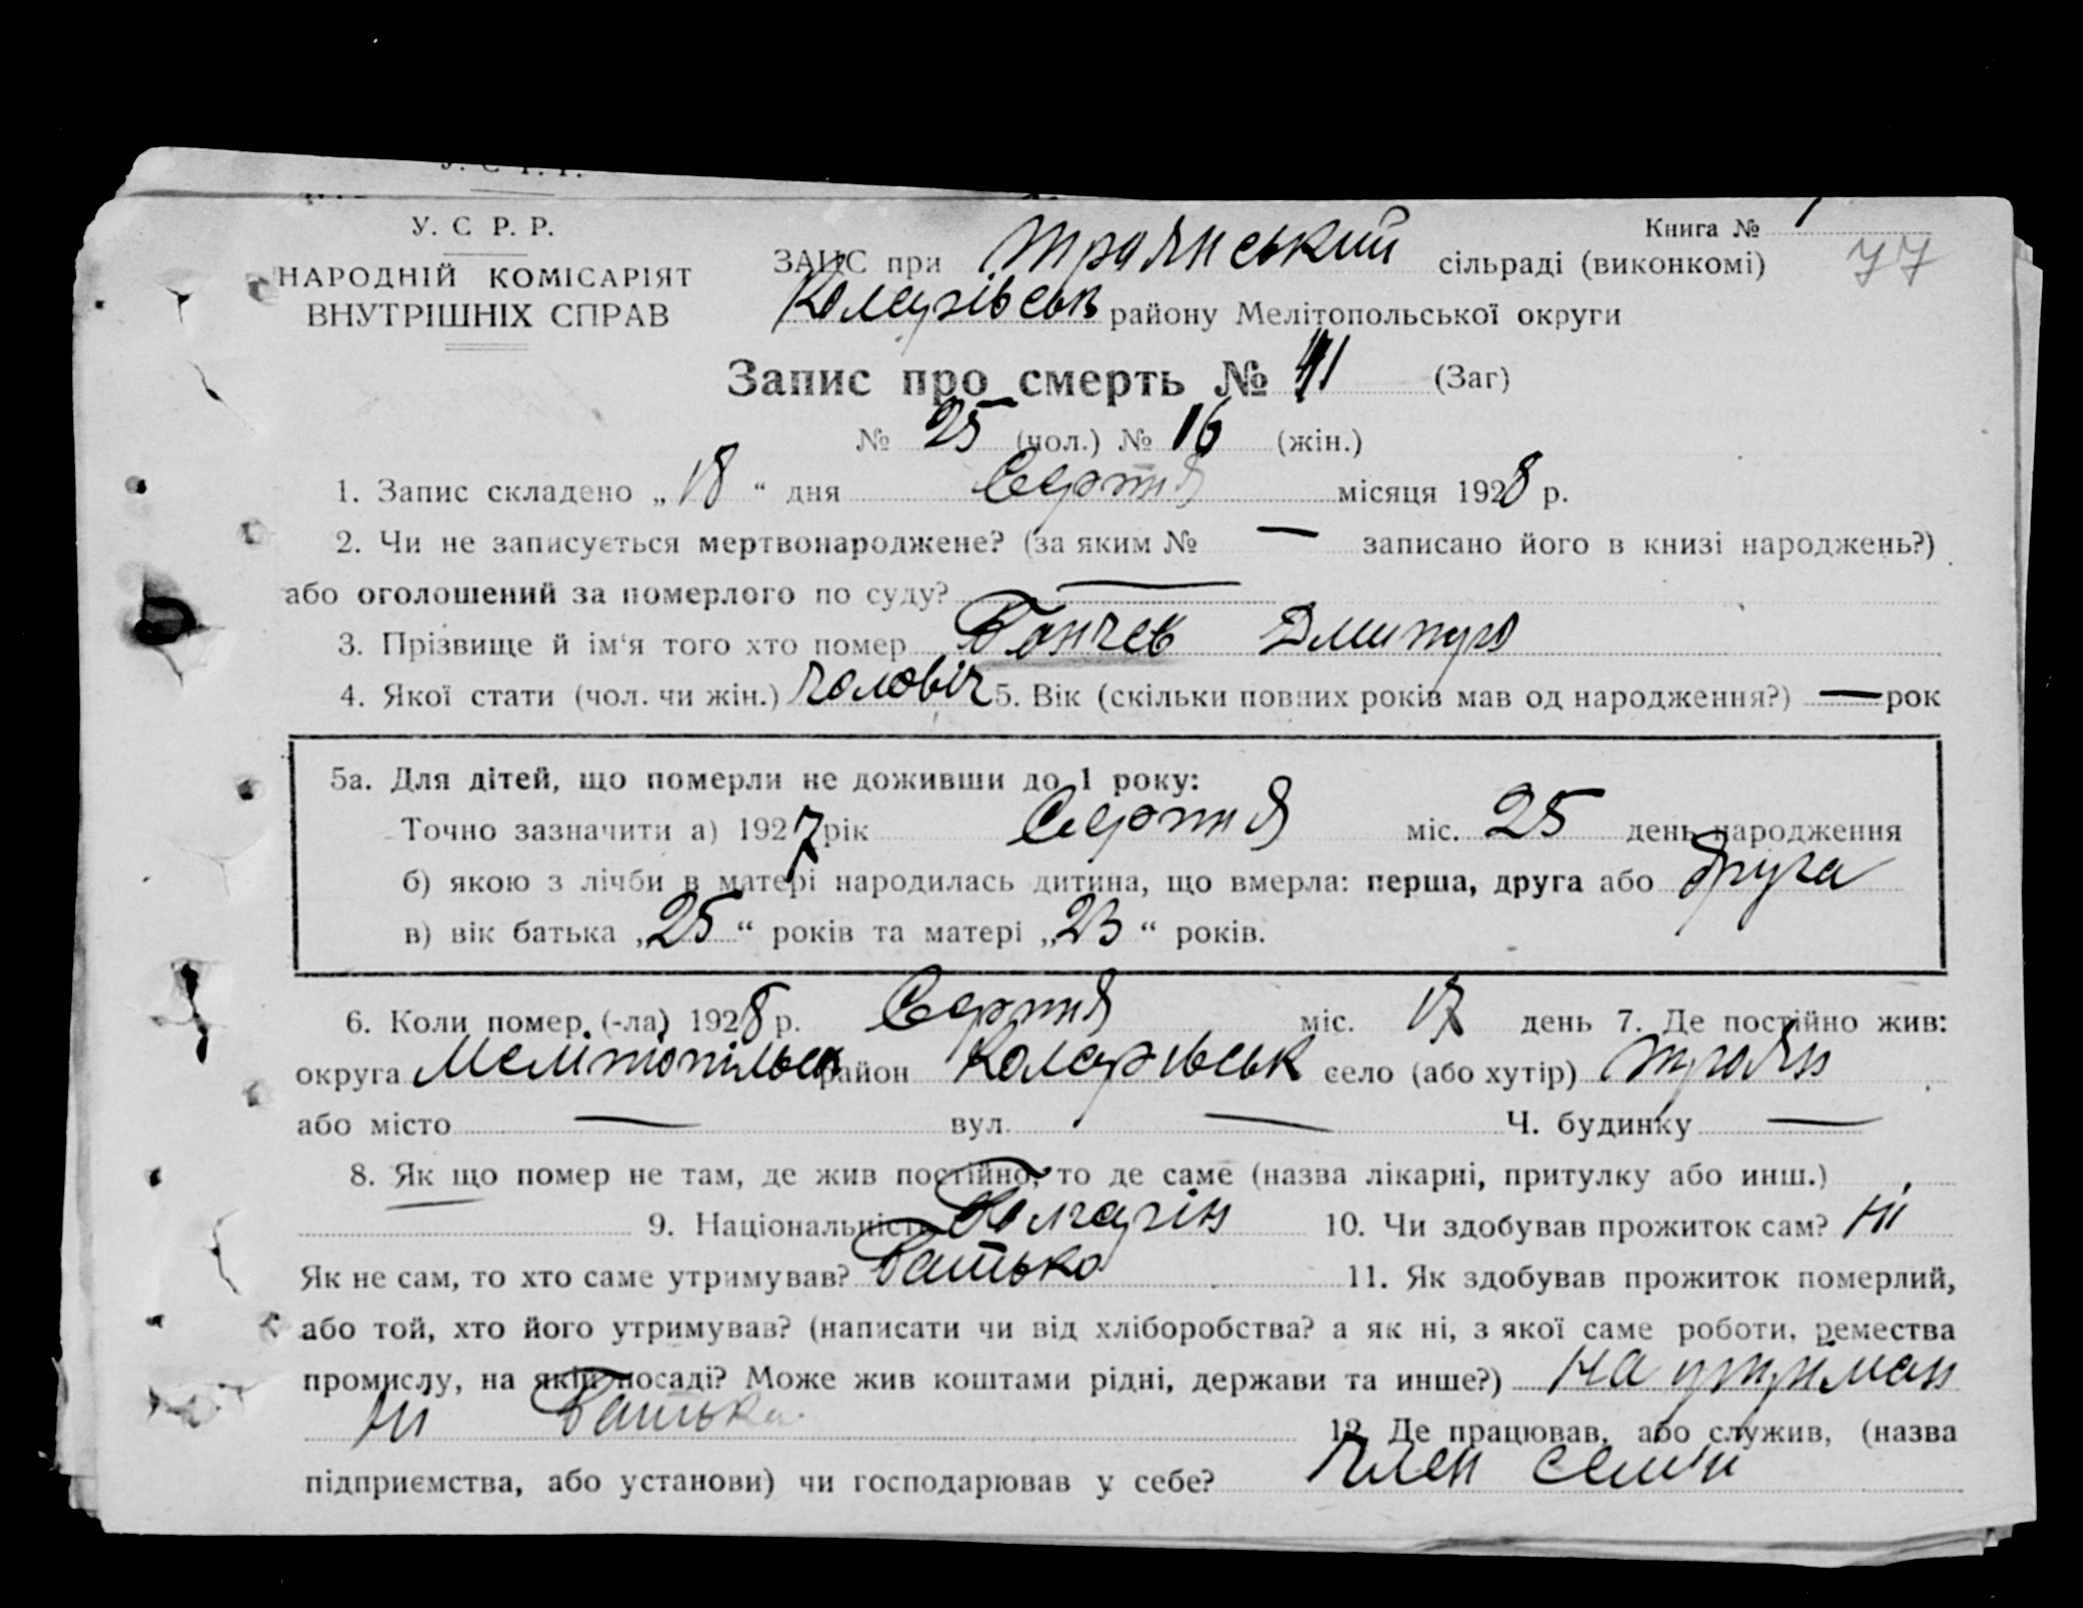 У. С. Р. Р.
НАРОДНІЙ КОМІСАРІЯТ
ВНУТРІШНІХ СПРАВ
Книга № 1
77
ЗАПС при Троянський сільраді (виконкомі)
Коларівськ району Мелітопольської округи
Запис про смерть № 41 (Заг)
№ 25 (чол.) № 16 (жін.)
1. Запис складено „18“ дня Серпня місяця 1928 р.
2. Чи не записується мертвонароджене? (за яким № — записано його в книзі народжень?)
або оголошений за померлого по суду? —
3. Прізвище й ім‘я того хто помер Банчев Дмитро
4. Якої стати (чол. чи жін.) чоловіч 5. Вік (скільки повних років мав од народження?) — рок
5а. Для дітей, що померли не доживши до 1 року:
Точно зазначити а) 1927 рік Серпня міс. 25 день народження
б) якою з лічби в матері народилась дитина, що вмерла: перша, друга або друга
в) вік батька „25“ років та матері „23“ років.
6. Коли помер (-ла) 1928 р. Серпня міс. 17 день 7. Де постійно жив:
округа Мелітопільськ район Коларівськ село (або хутір) Троян
або місто — вул. — Ч. будинку —
8. Як що помер не там, де жив постійно, то де саме (назва лікарні, притулку або инш.)
— 9. Національність Болгарін 10. Чи здобував прожиток сам? Ні
Як не сам, то хто саме утримував? Батько 11. Як здобував прожиток померлий,
або той, хто його утримував? (написати чи від хліборобства? а як ні, з якої саме роботи, ремества
промислу, на якій посаді? Може жив коштами рідні, держави та инше?) На утриман
ні Батька. 12. Де працював, або служив, (назва
підприємства, або установи) чи господарював у себе? Член семьи